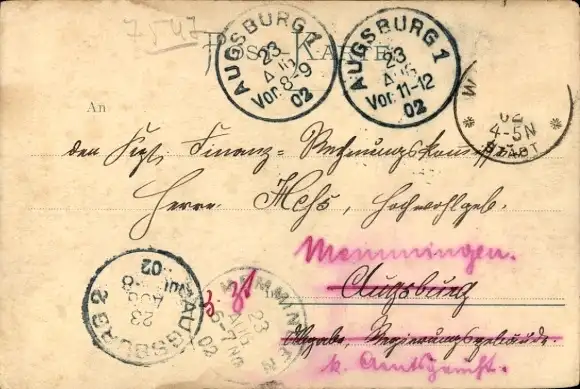 7547
Post-Karte
AUGSBURG 1
23
AUG
Vor. 8-9
02
AUGSBURG 1
23
AUG
Vor. 11-12
02
M
02
4-5N
STADT
An
den Kgl. Finanz-Rechnungskommissär
Herrn Hess, Hochwohlgeb.
Memmingen.
Augsburg
Obgabe, Regierungsgebäude.
k. Amtsgericht.
AUGSBURG 2
23
AUG
02
MEMMINGEN
23
AUG
6-7N
02